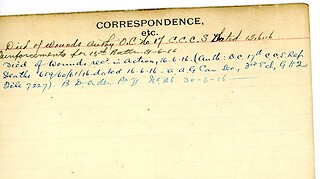 CORRESPONDENCE,
etc.
Died of Wounds Authy O.C. No 17 C.C.S Dated 15.6.16
reinforcements for 15th Battn 9-6-16
Died of Wounds rec. in Action, 16.6.16. (Auth: O.C. 17th C.C.S. Rep.
Deaths 659/60/61/16 dated 16.6.16 - A.A.G Can Sec, 3rd Ech, G.H.Q
File 7227) B 30-6-16